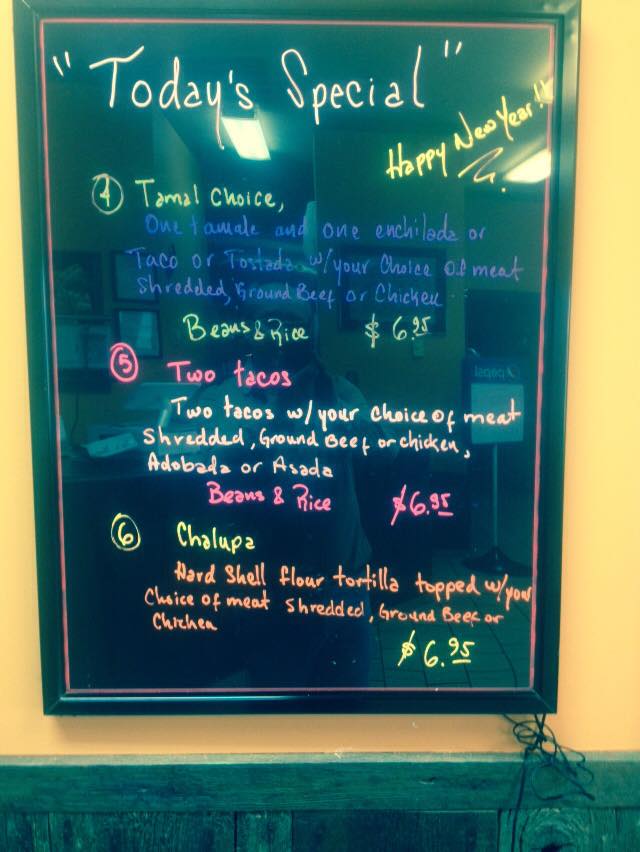 "Today's Special"
Happy New Year!!
④ Tamal Choice,
One tamale and one enchilada or
Taco or Tostada w/your Choice of meat
Shredded, Ground Beef or Chicken
Beans & Rice $6.95
⑤ Two tacos
Two tacos w/your choice of meat
Shredded, Ground Beef or chicken,
Adobada or Asada
Beans & Rice $6.95
⑥ Chalupa
Hard Shell flour tortilla topped w/your
Choice of meat Shredded, Ground Beef or
Chicken
$6.95